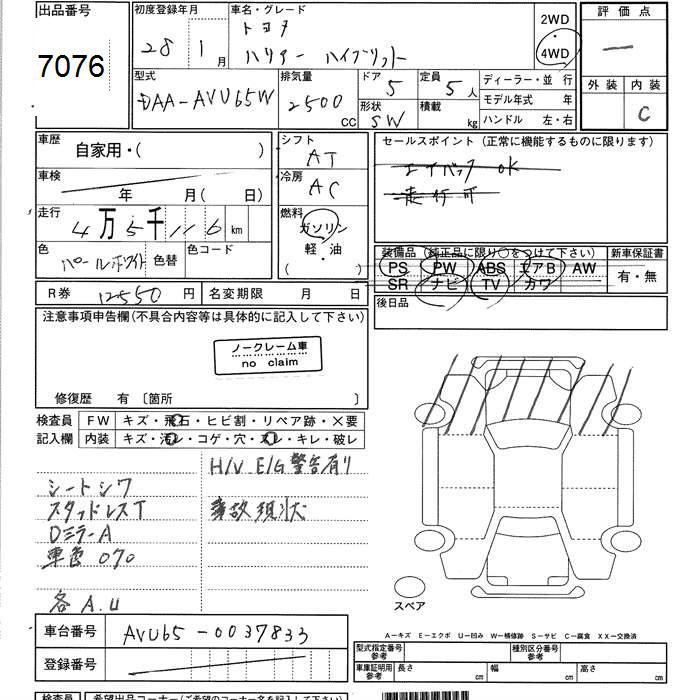 出品番号
7076
初度登録年月
28 1月
車名・グレード
トヨタ
ハリアー ハイブリット
2WD
・
4WD
評価点
―
外装 内装
C
型式
DAA-AVU65W
排気量
2500 CC
ドア 5
定員 5人
形状 SW
積載 kg
ディーラー・並 行
モデル年式 年
ハンドル 左・右
車歴
自家用・( )
車検
年 月( 日)
走行
4万5千116 km
色
パールホワイト
色替
色コード
シフト
AT
冷房
AC
燃料
ガソリン
軽・油
( )
セールスポイント (正常に機能するものに限ります)
エアバック OK
走行可
装備品 (純正品に限り○をつけて下さい)
PS PW ABS エアB AW
SR ナビ TV カワ
新車保証書
有・無
後日品
R券 12550 円
名変期限 月 日
注意事項申告欄(不具合内容等は具体的に記入して下さい)
ノークレーム車
no claim
修復歴 有 〔箇所 〕
検査員
記入欄
FW キズ・飛石・ヒビ割・リペア跡・×要
内装 キズ・汚レ・コゲ・穴・スレ・キレ・破レ
H/V E/G警告有り
シートシワ
スタッドレスT
事故現状
Dミラ-A
車色 070
各 A.U
スペア
車台番号
AVU65-0037833
登録番号
A―キズ E―エクボ U―凹み W―補修跡 S―サビ C―腐食 XX―交換済
型式指定番号
参考
種別区分番号
参考
車庫証明用
参考
長さ cm 幅 cm 高さ cm
検査員
希望出品コーナー(ご希望のコーナー名を記入下さい)